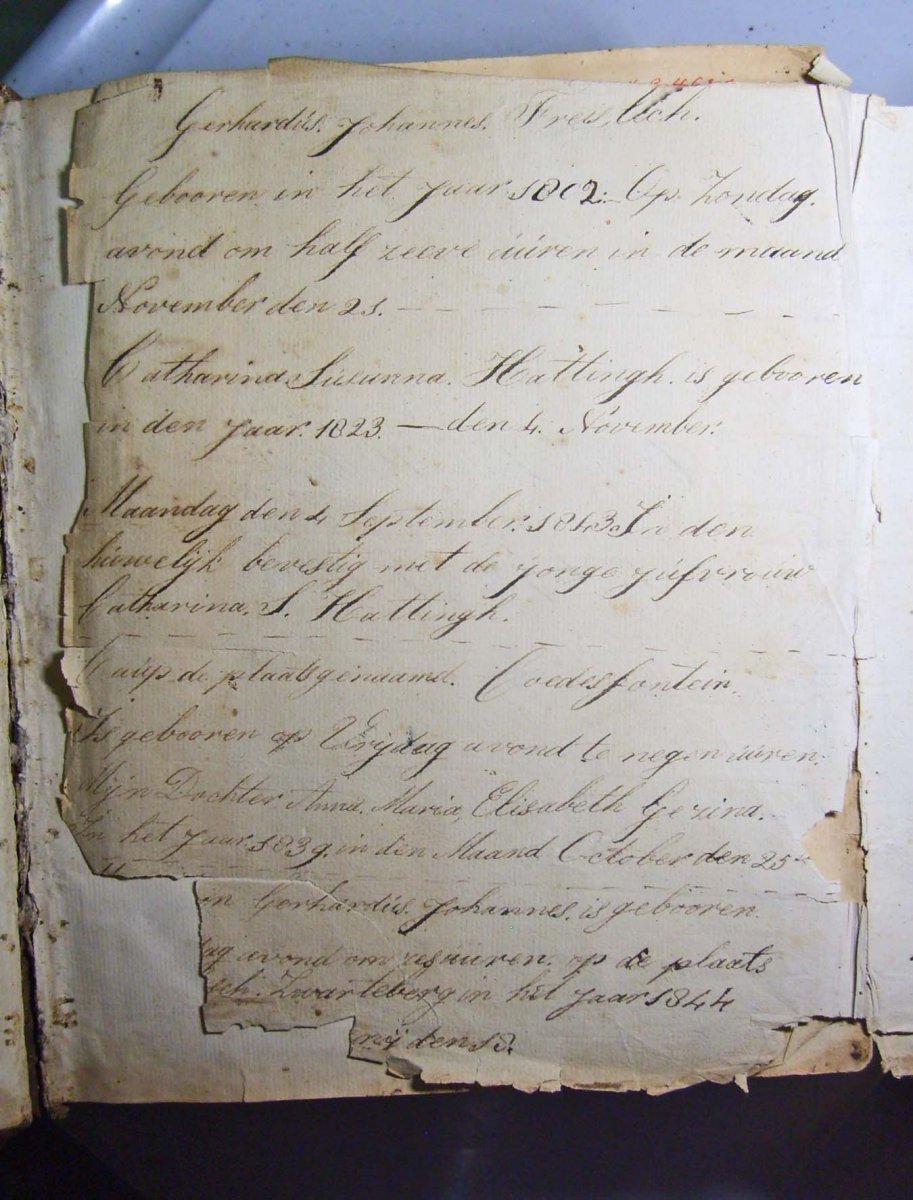 Gerhardús. Johannes. Freislich.
Gebooren in het Jaar 1802. Op Zondag.
avond om half zeeve úúren in de maand
November den 21.
Catharina Súsanna. Hattingh. is gebooren
in den Jaar. 1823. — den 4. November.
Maandag den 4 September. 1843. In den
húwelijk bevestig met de jonge júfvrouw
Catharina. S. Hattingh.
op de plaats genaamd. Coedesfontein.
Is gebooren op Vrijdag avond te negen úúren.
Mijn Dochter Anna. Maria, Elisabeth Gezina.
In het Jaar. 1839. in den Maand October den 25
Gerhardús. Johannes. is gebooren.
avond om úúren. op de plaats
Zwarteberg in het Jaar 1844
den 18.